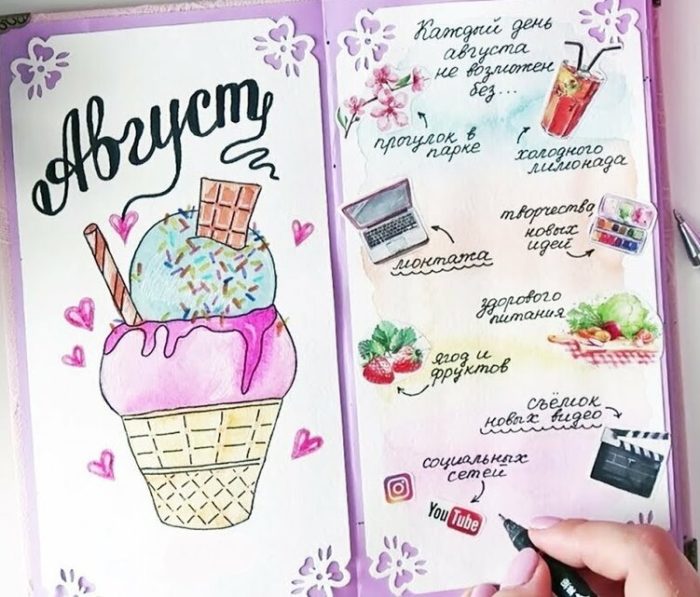 Август
Каждый день
августа
не возможен
без...
прогулок в
парке
холодного
лимонада
монтажа
творчества
новых
идей
здорового
питания
ягод и
фруктов
съёмок
новых видео
социальных
сетей
YouTube